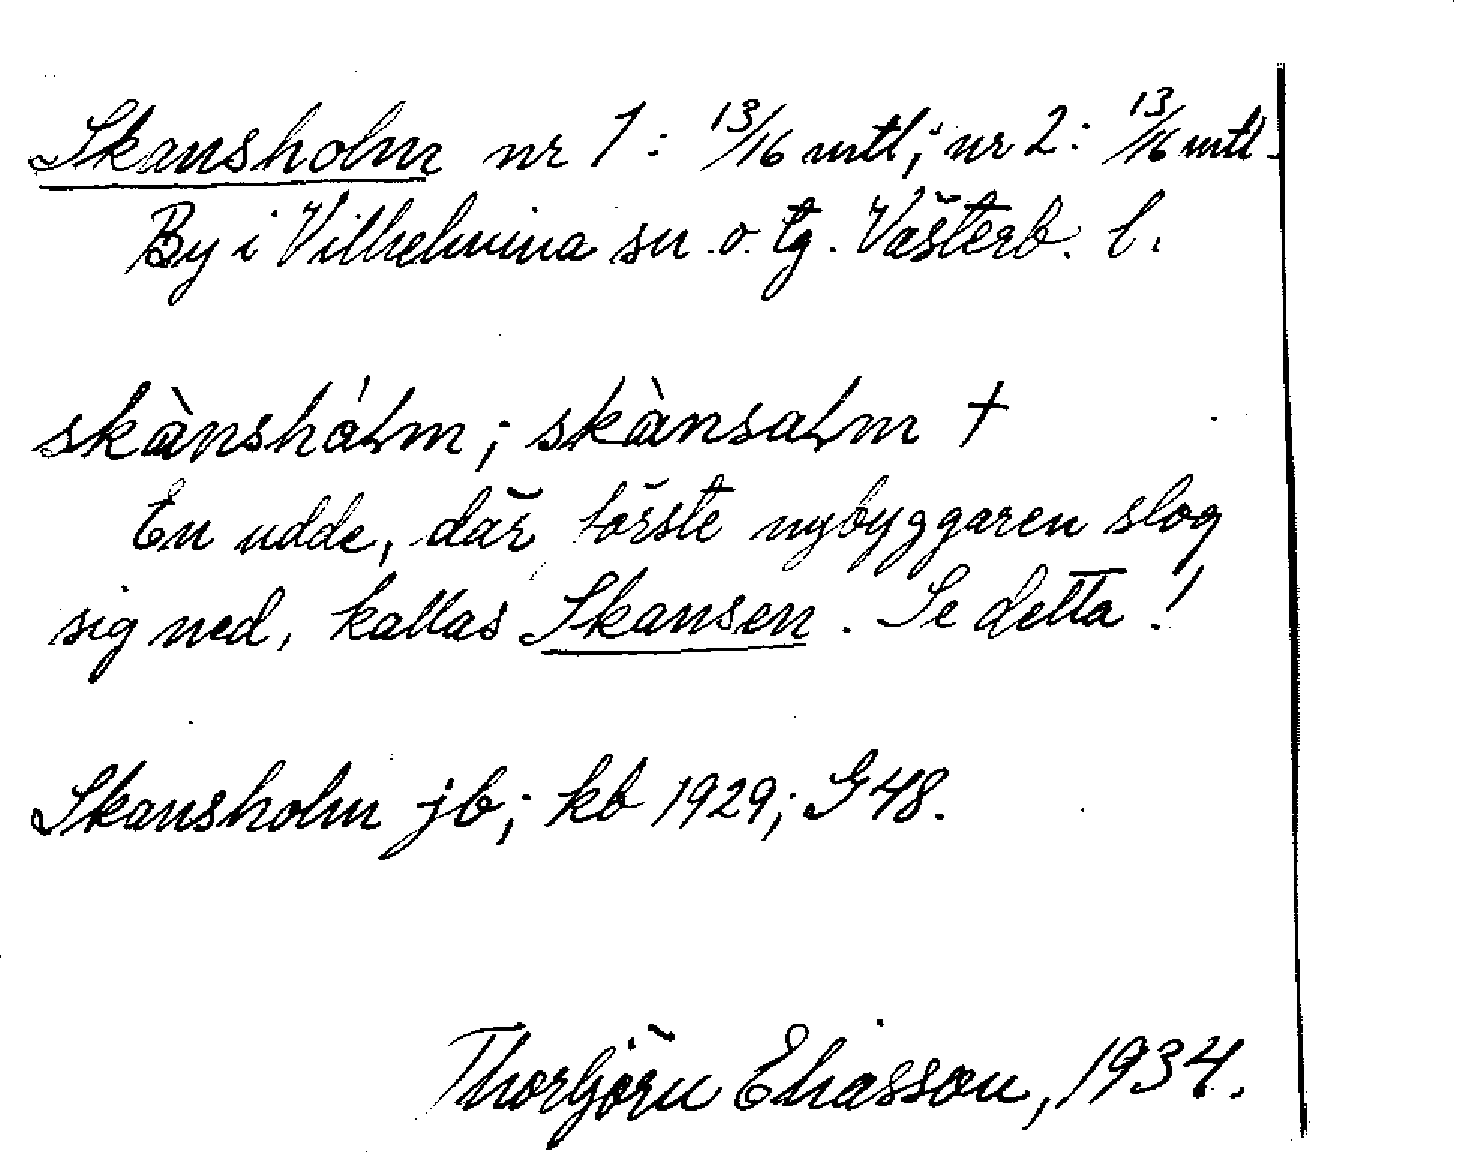 Skansholm nr 1: 13/16 mtl; nr 2: 13/16 mtl.
By i Vilhelmina sn o. tg. Västerb. l.
skànshálm; skànsaLm +
En udde, där förste nybyggaren slog
sig ned, kallas Skansen. Se detta!
Skansholm jb; kb 1929; G 48.
Thorbjörn Eliasson, 1934.